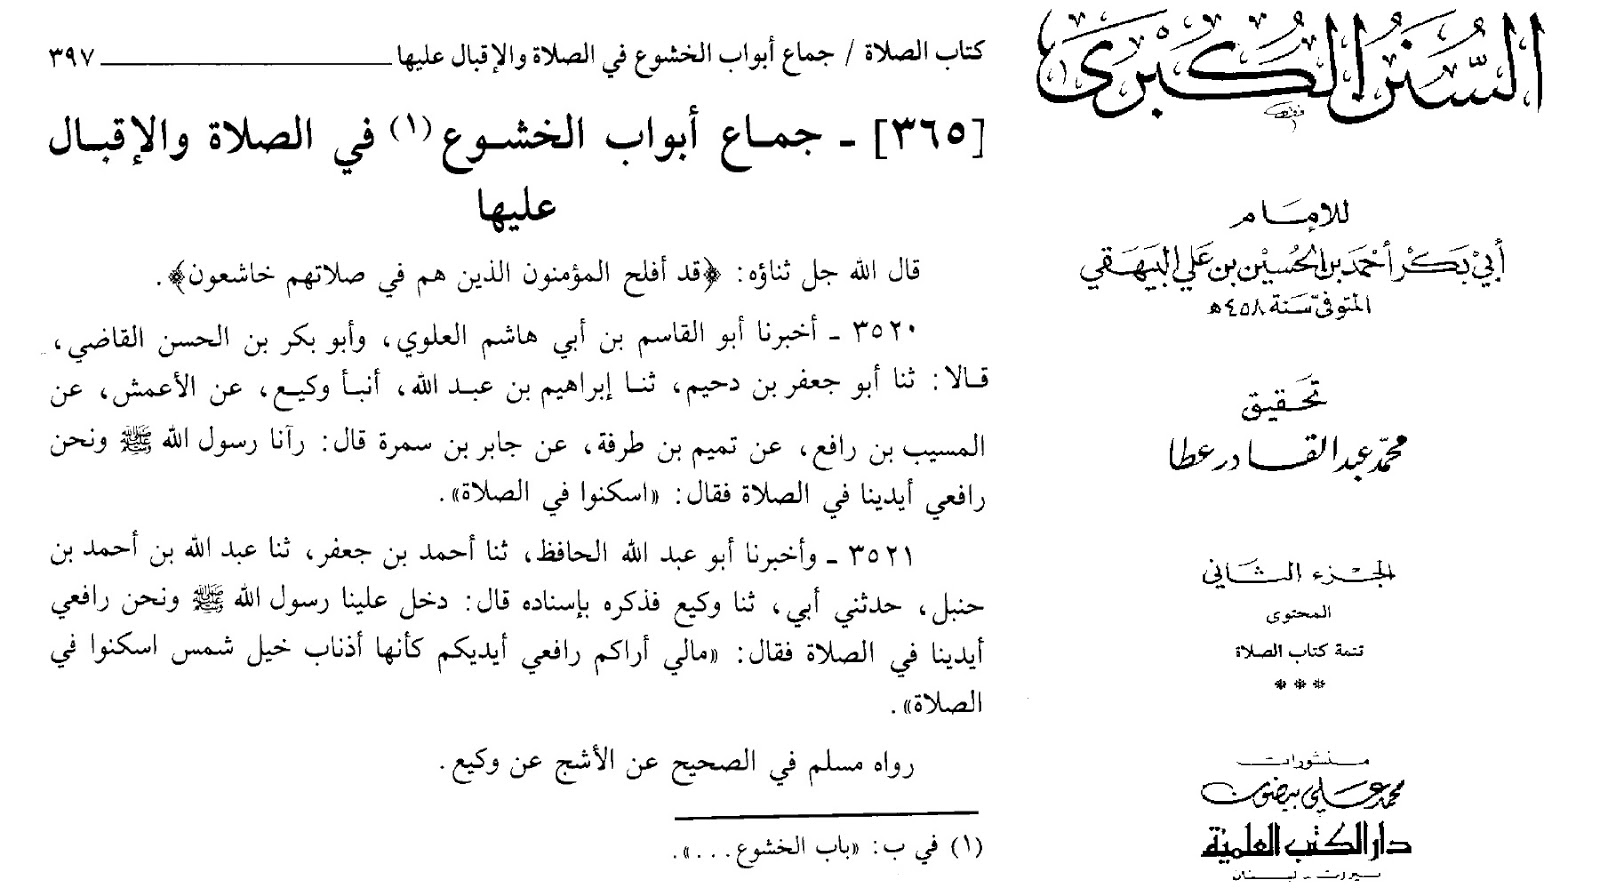 السنن الكبرى
للإمام
أبي بكر أحمد بن الحسين بن علي البيهقي
المتوفى سنة ٤٥٨ هـ
تحقيق
محمد عبد القادر عطا
الجزء الثاني
المحتوى
تتمة كتاب الصلاة
***
منشورات
محمد علي بيضون
دار الكتب العلمية
بيروت - لبنان
كتاب الصلاة / جماع أبواب الخشوع في الصلاة والإقبال عليها ٣٩٧
[٣٦٥] - جماع أبواب الخشوع (١) في الصلاة والإقبال
عليها
قال الله جل ثناؤه: ﴿قد أفلح المؤمنون الذين هم في صلاتهم خاشعون﴾.
٣٥٢٠ - أخبرنا أبو القاسم بن أبي هاشم العلوي، وأبو بكر بن الحسن القاضي،
قالا: ثنا أبو جعفر بن دحيم، ثنا إبراهيم بن عبد الله، أنبأ وكيع، عن الأعمش، عن
المسيب بن رافع، عن تميم بن طرفة، عن جابر بن سمرة قال: رآنا رسول الله ﷺ ونحن
رافعي أيدينا في الصلاة فقال: «اسكنوا في الصلاة».
٣٥٢١ - وأخبرنا أبو عبد الله الحافظ، ثنا أحمد بن جعفر، ثنا عبد الله بن أحمد بن
حنبل، حدثني أبي، ثنا وكيع فذكره بإسناده قال: دخل علينا رسول الله ﷺ ونحن رافعي
أيدينا في الصلاة فقال: «مالي أراكم رافعي أيديكم كأنها أذناب خيل شمس اسكنوا في
الصلاة».
رواه مسلم في الصحيح عن الأشج عن وكيع.
(١) في ب: «باب الخشوع...».